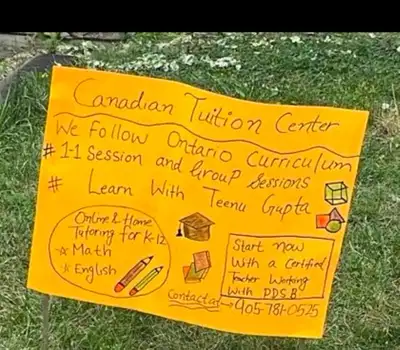 Canadian Tuition Center
We Follow Ontario Curriculum
# 1-1 Session and Group Sessions
# Learn With Teenu Gupta
Online & Home
Tutoring for K-12
☆ Math
☆ English
Start now
With a Certified
Teacher Working
With PDSB
Contact at → 905-781-0525